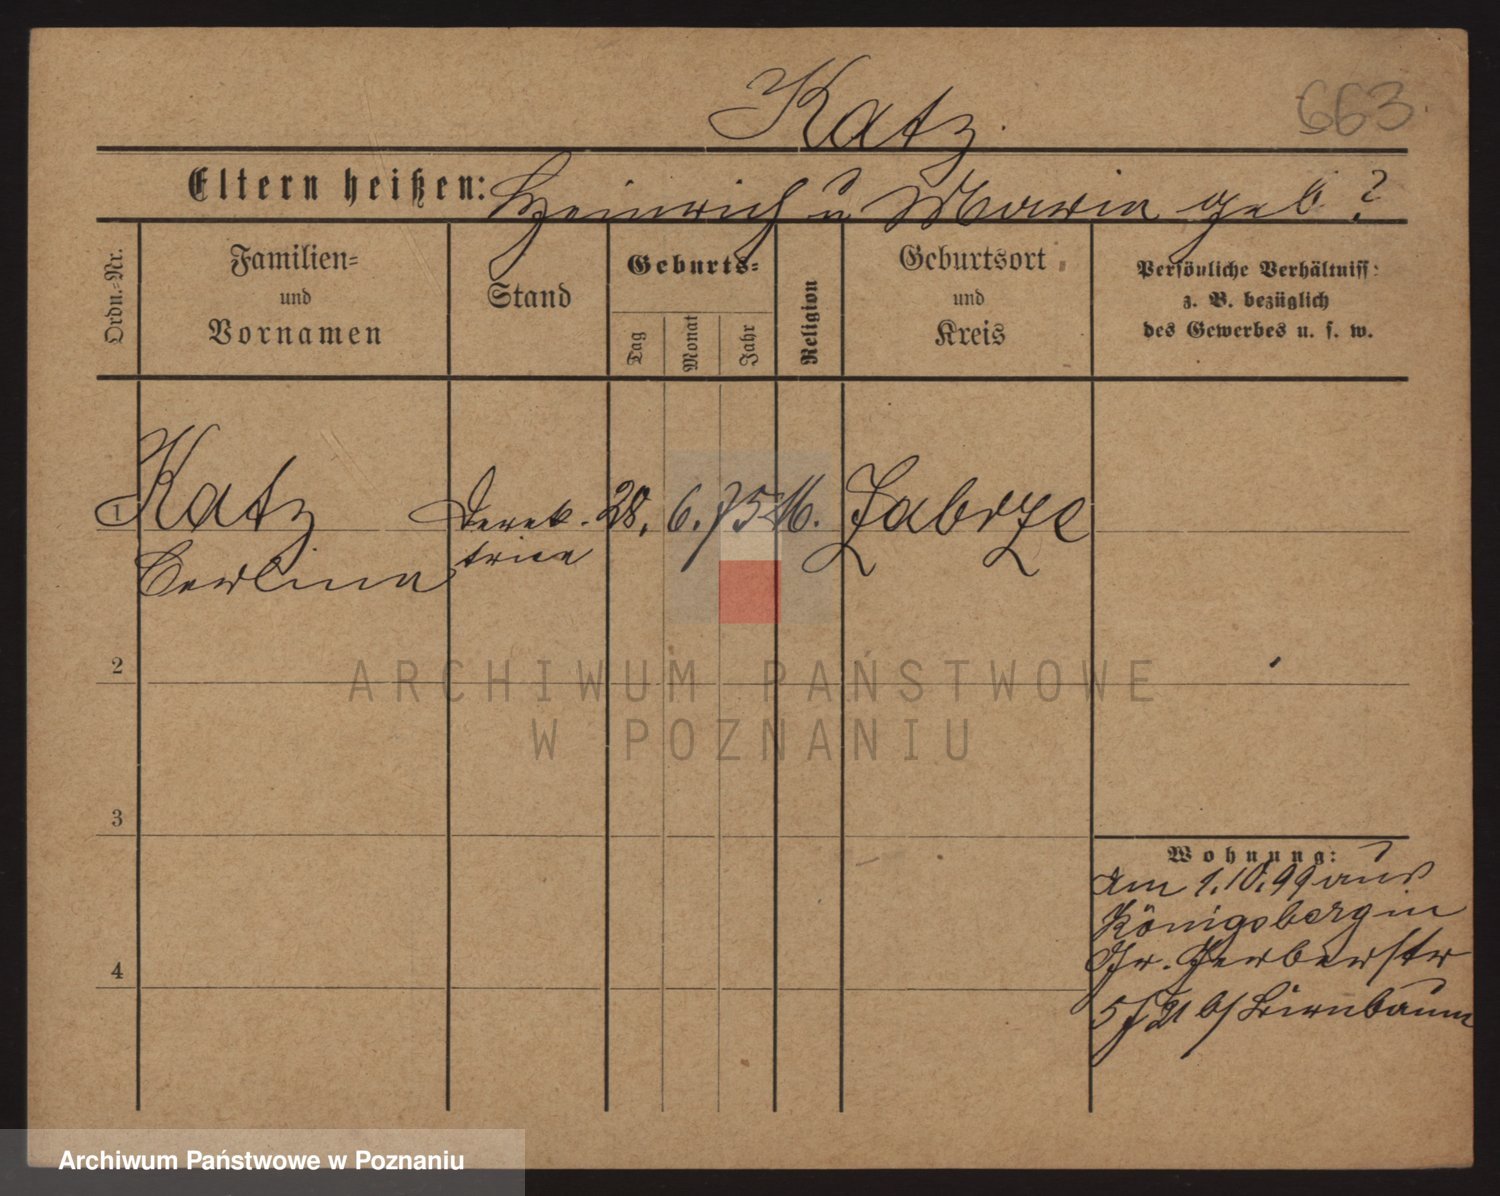 Katz.
663.
Eltern heißen: Heinrich u Maria geb. ?
Ordn.-Nr.
Familien-
und
Vornamen
Stand
Geburts-
Tag
Monat
Jahr
Religion
Geburtsort
und
Kreis
Persönliche Verhältniss:
z. B. bezüglich
des Gewerbes u. s. w.
1 Katz 28. 6. 75 M. Zabrze
trice
2
3
4
Wohnung:
am 1.10.99 aus
Königsberg in
Gr. Gerberstr
5 b/ Birnbaum
ARCHIWUM PAŃSTWOWE
W POZNANIU
Archiwum Państwowe w Poznaniu